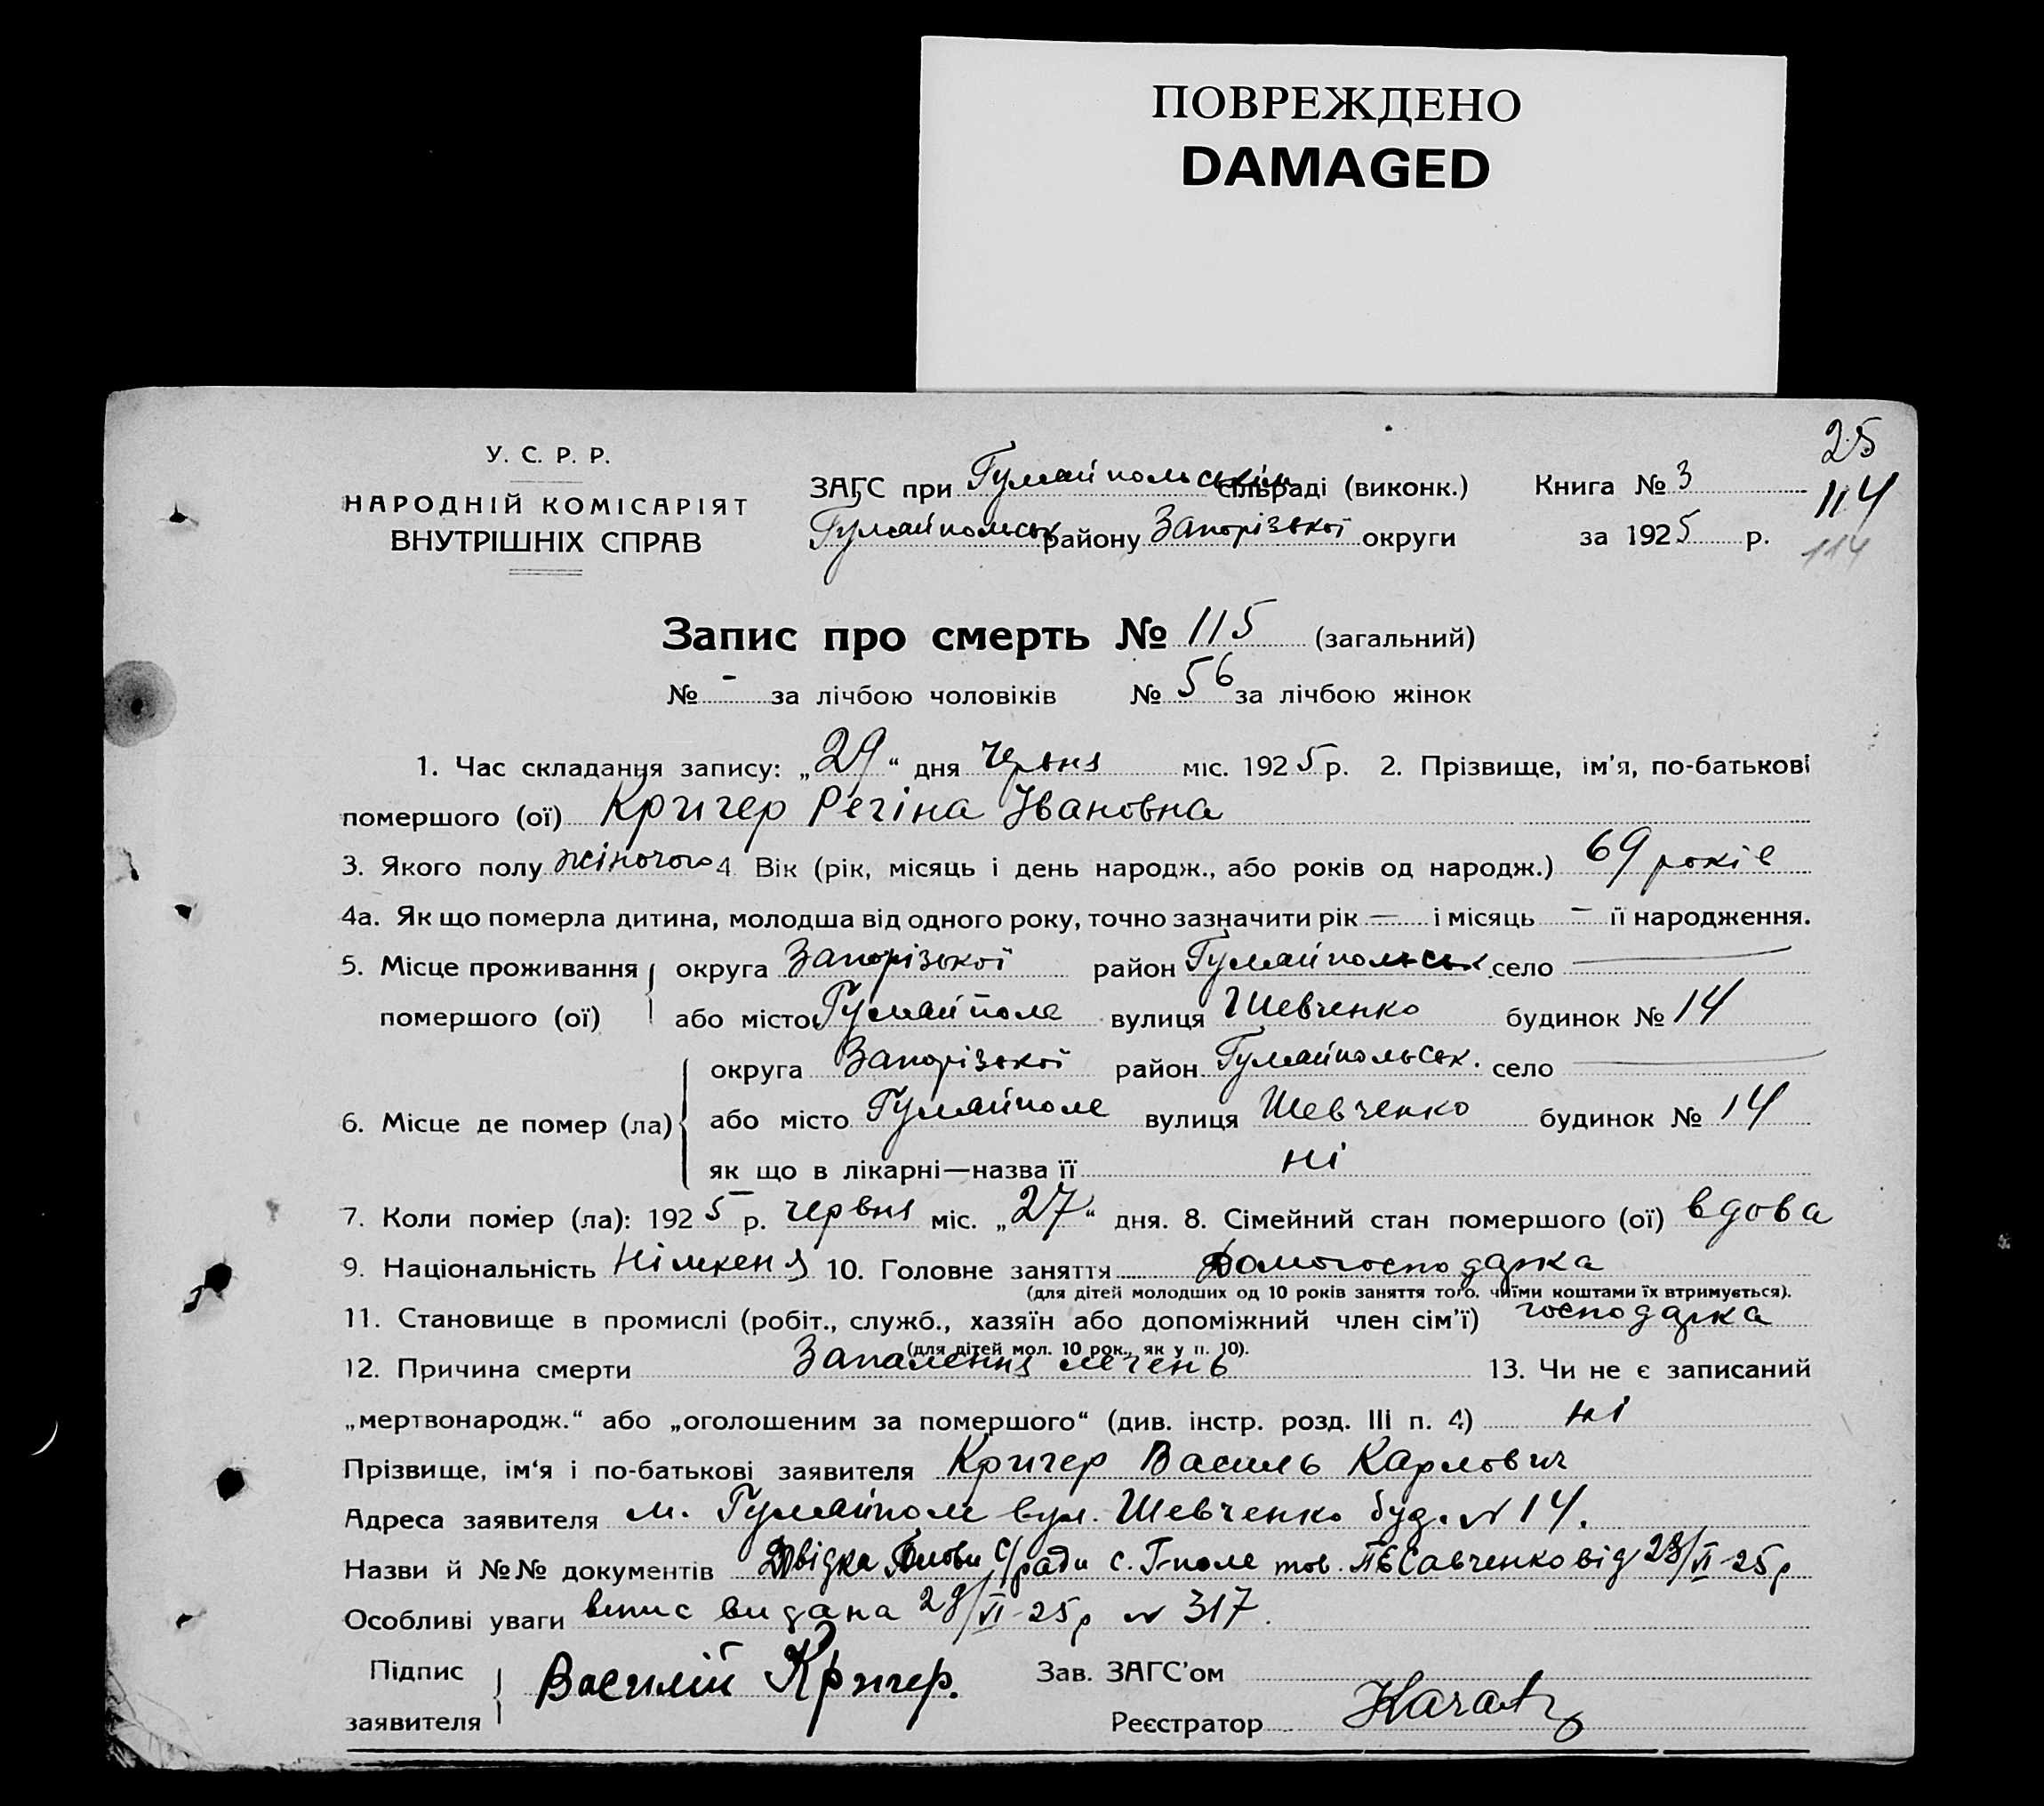 ПОВРЕЖДЕНО
DAMAGED
25
У. С. Р. Р.
НАРОДНІЙ КОМІСАРІЯТ
ВНУТРІШНІХ СПРАВ
ЗАГС при Гуляйпольським сільраді (виконк.) Книга № 3
114
Гуляйпольськ району Запорізької округи за 1925 р.
114
Запис про смерть № 115 (загальний)
№ - за лічбою чоловіків № 56 за лічбою жінок
1. Час складання запису: „29“ дня червня міс. 1925 р. 2. Прізвище, ім'я, по-батькові
помершого (ої) Кригер Регіна Івановна
3. Якого полу жіночого 4 Вік (рік, місяць і день народж., або років од народж.) 69 років
4а. Як що померла дитина, молодша від одного року, точно зазначити рік — і місяць — її народження.
5. Місце проживання округа Запорізької район Гуляйпольськ. село —
помершого (ої) або місто Гуляйполе вулиця Шевченко будинок № 14
округа Запорізької район Гуляйпольськ. село —
6. Місце де помер (ла) або місто Гуляйполе вулиця Шевченко будинок № 14
як що в лікарні—назва її ні
7. Коли помер (ла): 1925 р. червня міс. „27“ дня. 8. Сімейний стан помершого (ої) вдова
9. Національність Німкеня 10. Головне заняття домогосподарка
(для дітей молодших од 10 років заняття того, чиїми коштами їх втримується).
11. Становище в промислі (робіт., служб., хазяїн або допоміжний член сім'ї) господарка
(для дітей мол. 10 рок., як у п. 10).
12. Причина смерти Запалення легень 13. Чи не є записаний
„мертвонародж.“ або „оголошеним за померш­ого“ (див. інстр. розд. III п. 4) ні
Прізвище, ім'я і по-батькові заявителя Кригер Василь Карлович
Адреса заявителя м. Гуляйполе вул. Шевченко буд. № 14.
Назви й №№ документів Довідка Голови С/ради с. Г-поле тов. Савченко від 28/VI-25р
Особливі уваги видана 29/VI-25р № 317.
Підпис Василій Кригер. Зав. ЗАГС'ом
заявителя Реєстратор